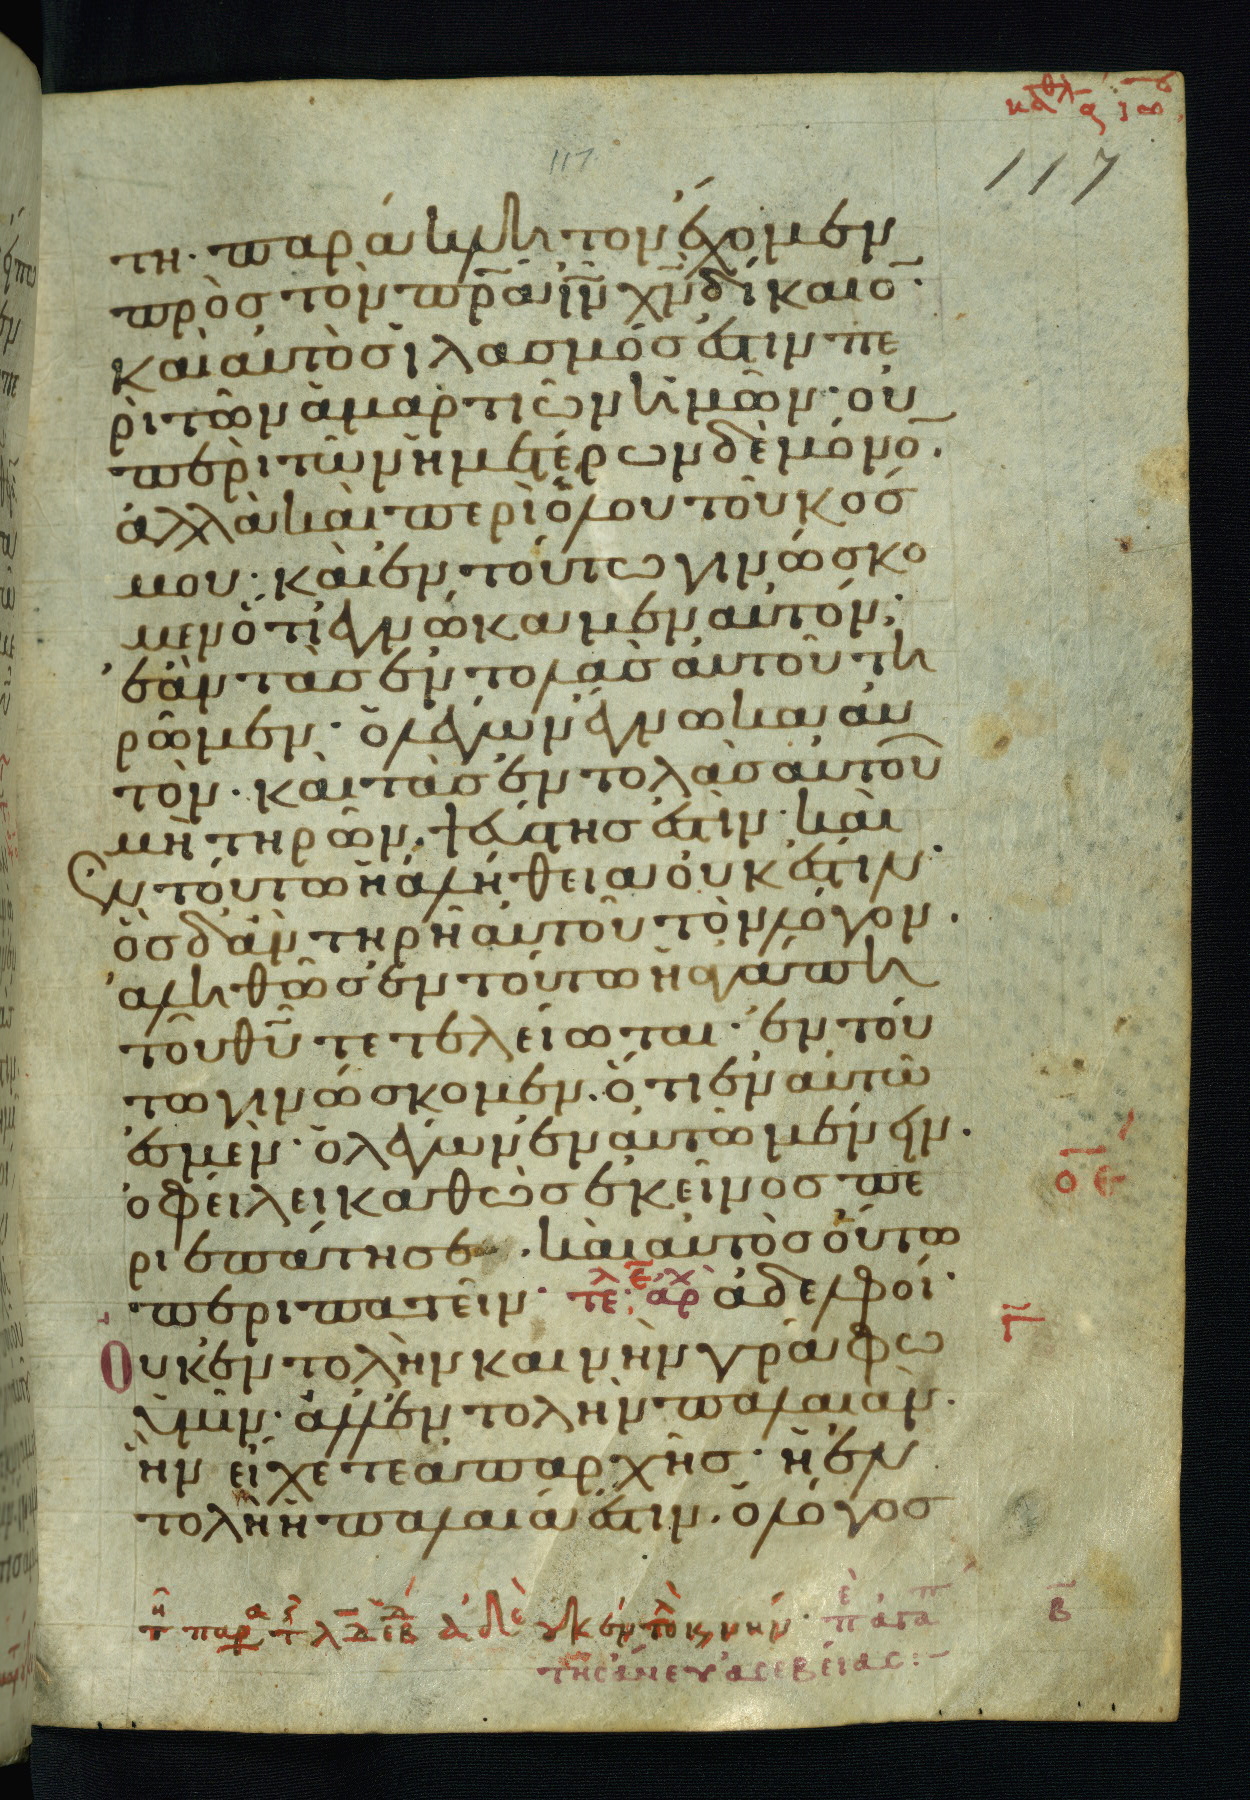 117
117
τη· παράκλητον ἔχομεν
πρὸς τὸν πρ̅α ι̅ν̅ χ̅ν̅ δίκαιο̅·
καὶ αὐτὸς ἱλασμός ἐστιν πε
ρὶ τῶν ἁμαρτιῶν ἡμῶν· οὐ
περὶ τῶν ἡμετέρων δὲ μόνο̅·
ἀλλὰ καὶ περὶ ὅλου τοῦ κόσ
μου· καὶ ἐν τούτω γινώσκο
μεν ὅτι ἐγνώκαμεν αὐτόν·
ἐὰν τὰς ἐντολὰς αὐτοῦ τη
ρῶμεν· ὁ λέγων ἔγνωκα αὐ
τὸν· καὶ τὰς ἐντολὰς αὐτοῦ
μὴ τηρῶν· ψεύστης ἐστὶν· καὶ
Ἐν τούτω ἡ ἀλήθεια οὐκ ἔστιν·
ὃς δ' ἂν τηρῆ αὐτοῦ τὸν λόγον·
ἀληθῶς ἐν τούτω ἡ ἀγάπη
τοῦ θ̅υ̅ τετελείωται· ἐν τού
τω γινώσκομεν· ὅτι ἐν αὐτῶ
ἐσμὲν· ὁ λέγων ἐν αὐτῶ μένειν·
ὀφείλει καθὼς ἐκεῖνος πε
ριεπάτησε· καὶ αὐτὸς οὕτω
περιπατεῖν· τε· ἀρχ ἀδελφοί·
Οὐκ ἐντολὴν καινὴν γράφω
ὑμῖν· ἀλλ' ἐντολὴν παλαιὰν·
ἣν εἴχετε ἀπαρχῆς· ἡ ἐν
τολὴ ἡ παλαιά ἐστιν· ὁ λόγος
ο̅ε̅
γ̅
β̅